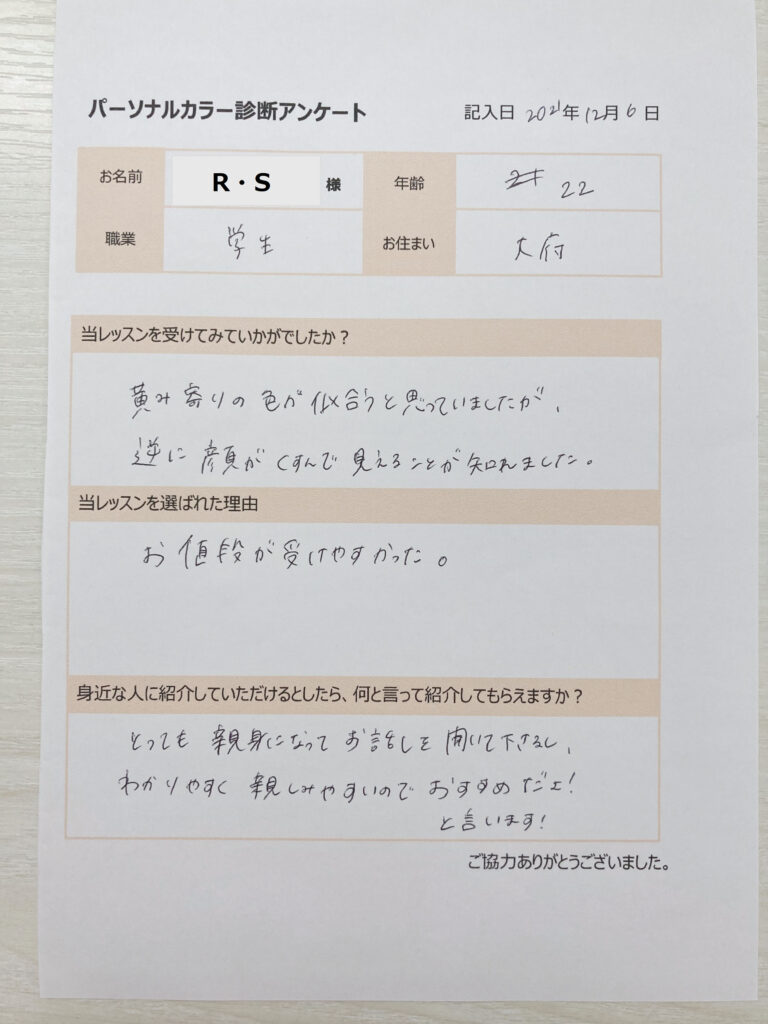 パーソナルカラー診断アンケート
記入日 2021年12月6日
お名前 R・S 様 年齢 22
職業 学生 お住まい 大府
当レッスンを受けてみていかがでしたか？
黄み寄りの色が似合うと思っていましたが、
逆に顔がくすんで見えることが知れました。
当レッスンを選ばれた理由
お値段が受けやすかった。
身近な人に紹介していただけるとしたら、何と言って紹介してもらえますか？
とっても親身になってお話しを聞いて下さるし、
わかりやすく親しみやすいのでおすすめだよ！
と言います！
ご協力ありがとうございました。